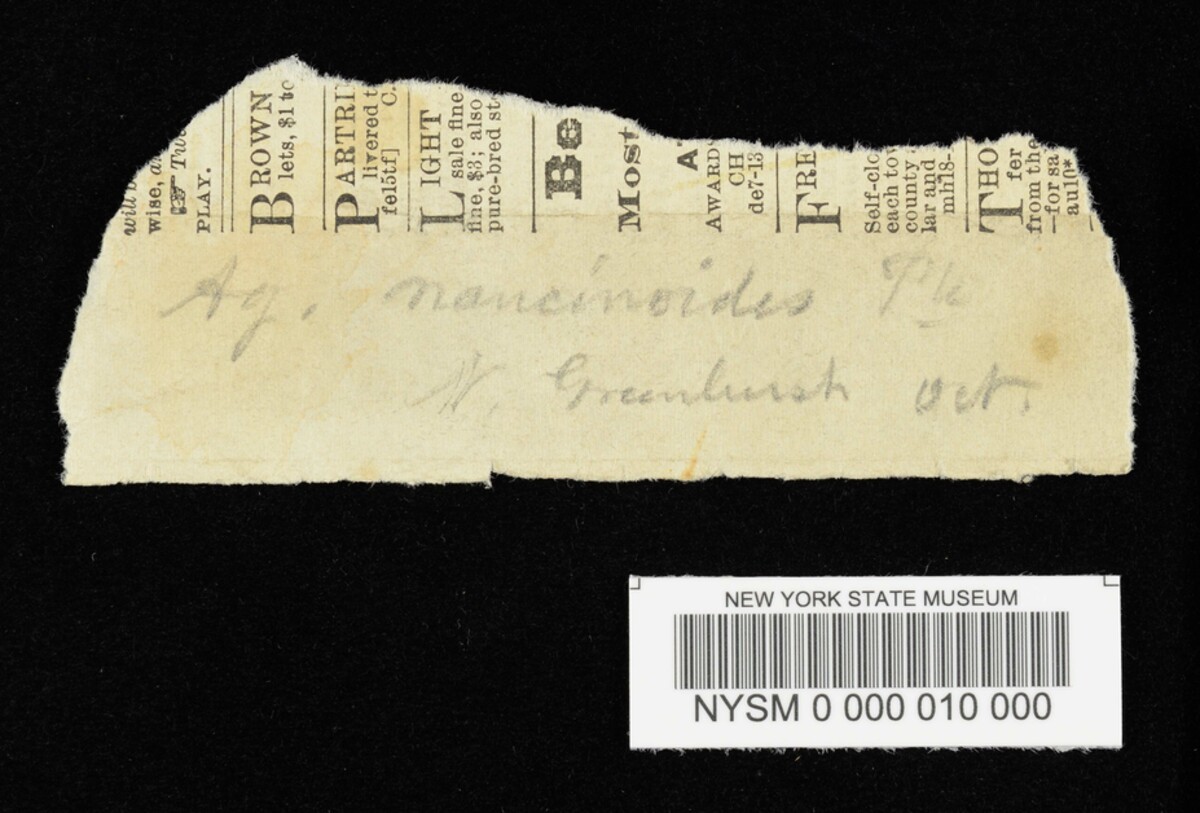 will b
wise, a
☞ Tw
PLAY.
BROWN
lets, $1 to
PARTRI
livered t
fe15tf] C.
LIGHT
sale fine
fine, $3; also
pure-bred st
Be
Most
A
AWARD
CH
de7-13
FRE
Self-clo
each tow
county
lar and
mh18-
THO
fer
from the
for sa
au10*
Ag. naucinoides Pk
N. Greenbush Oct.
NEW YORK STATE MUSEUM
NYSM 0 000 010 000